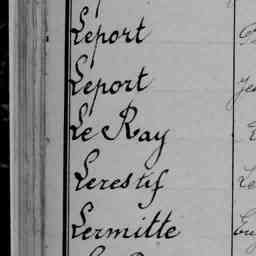 Leport
Leport
Le Ray
Lerestif
Lermitte